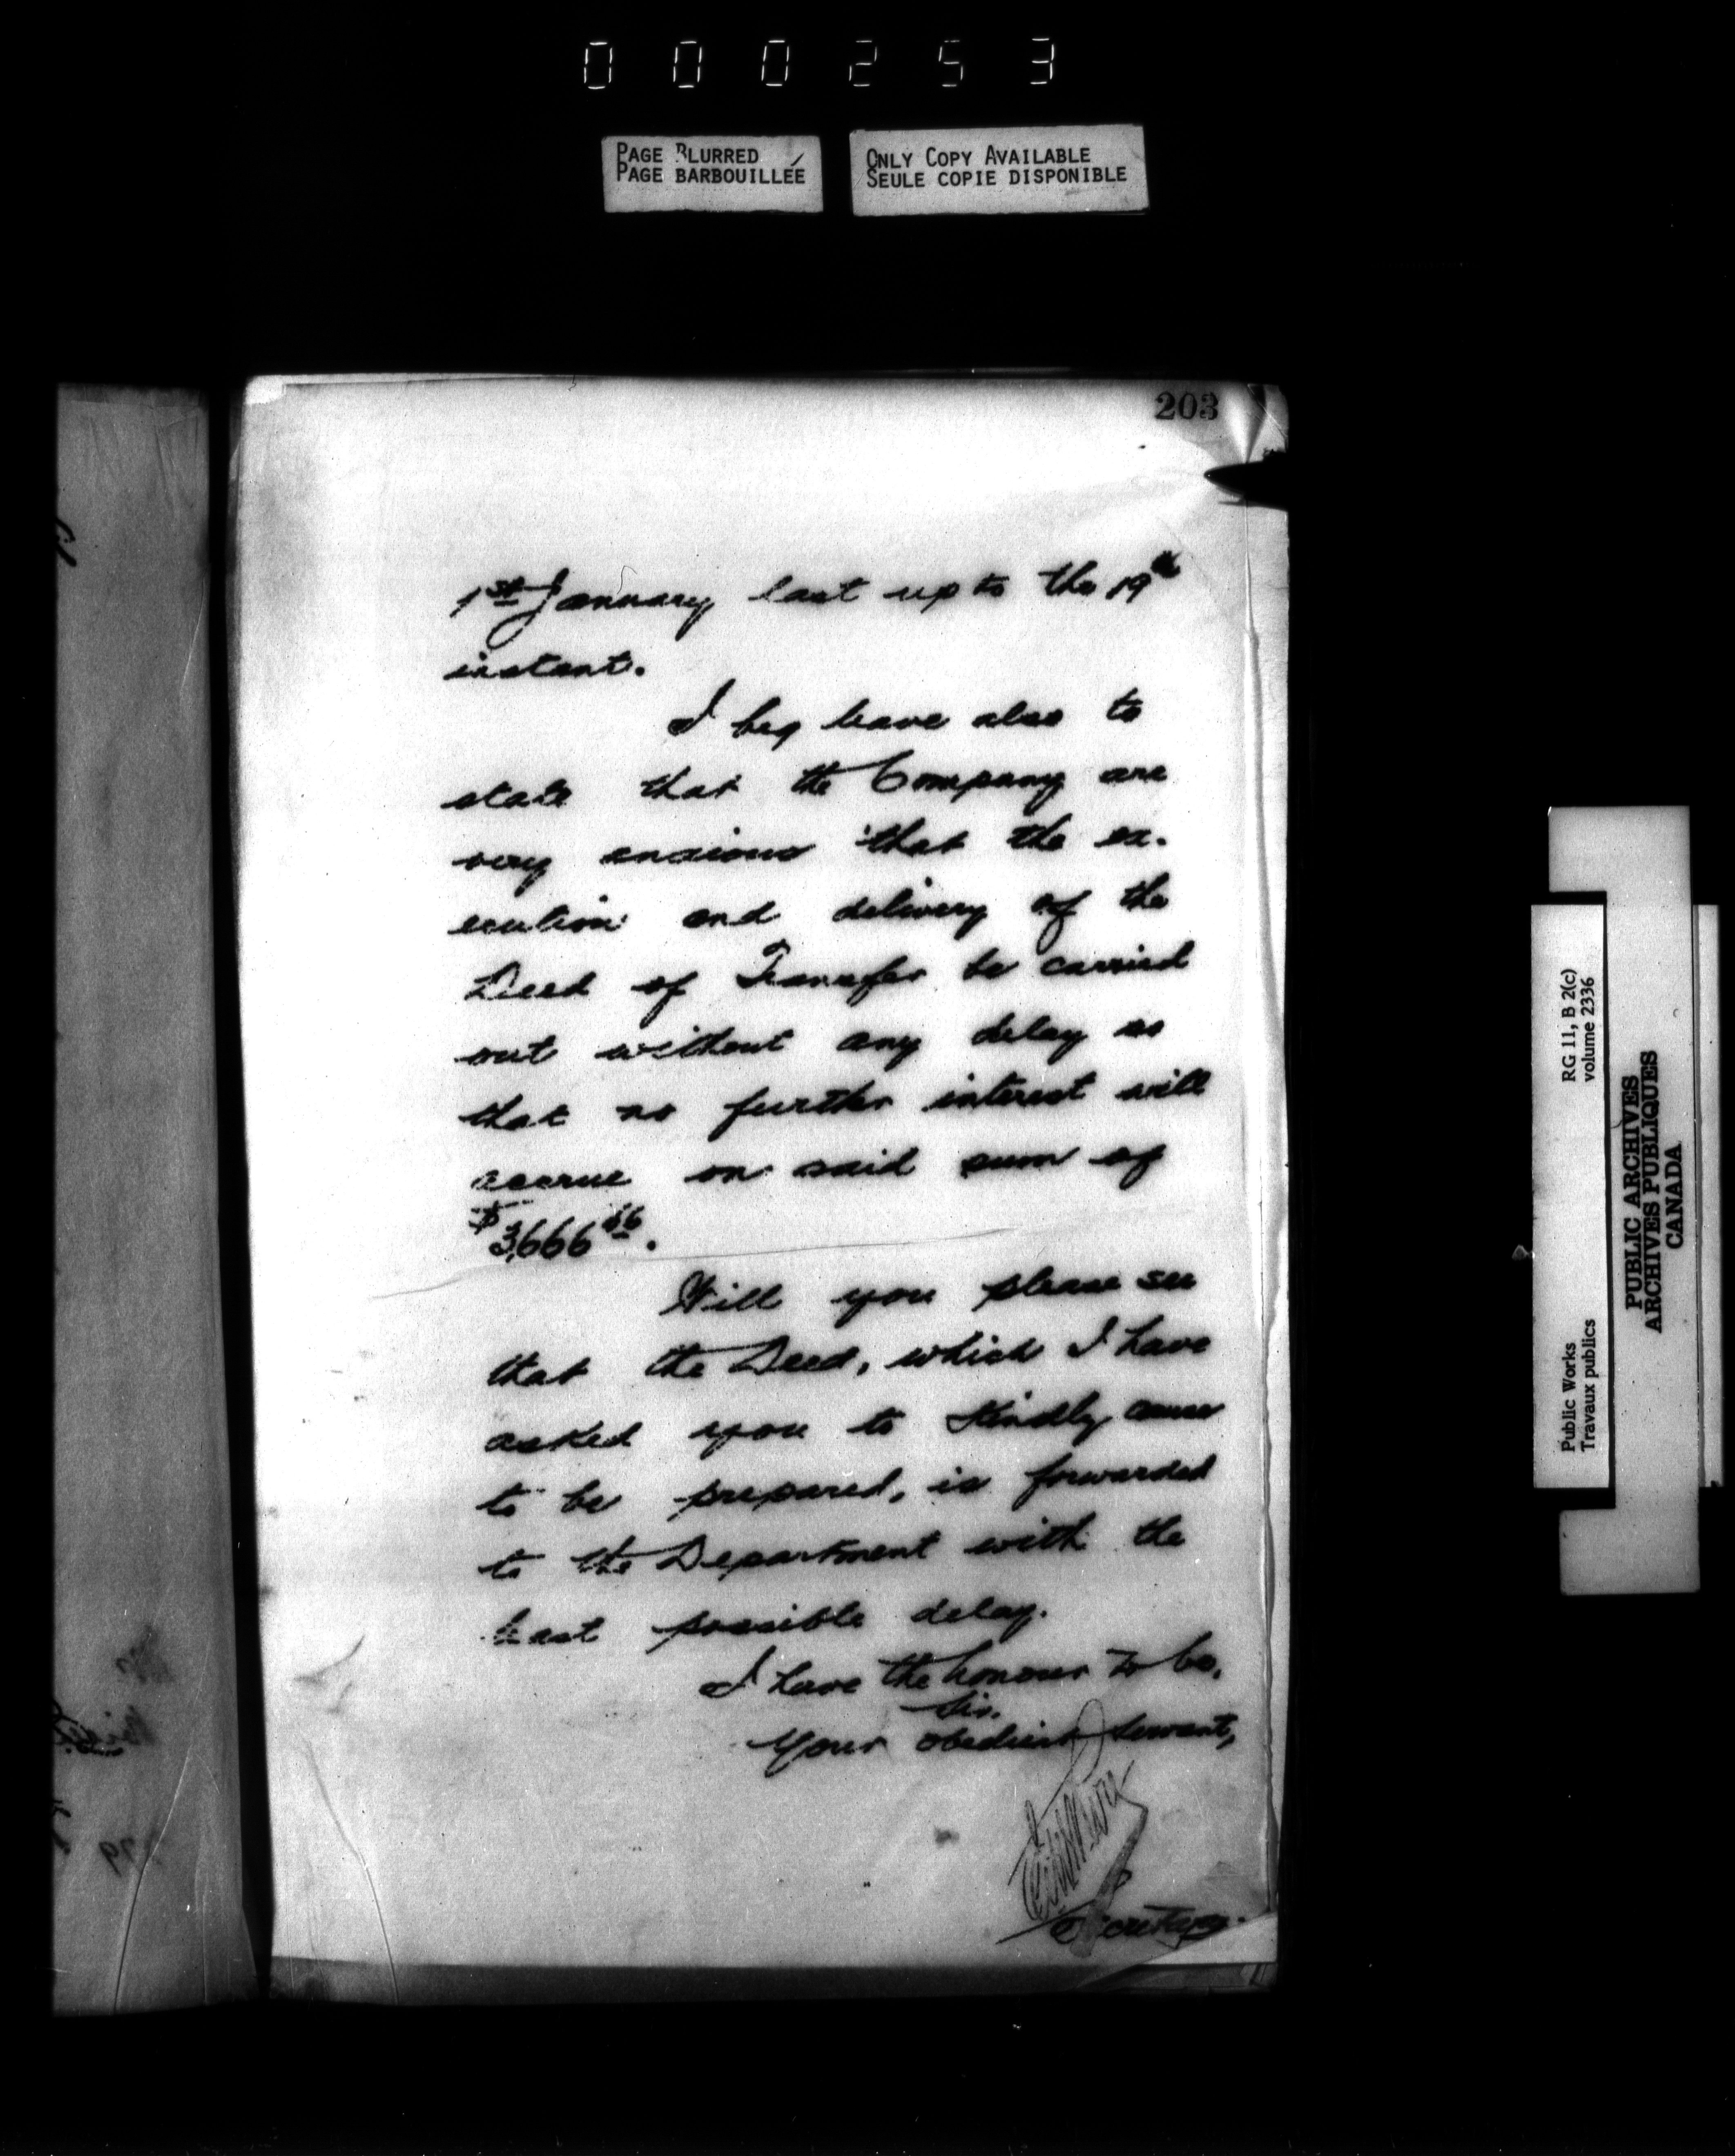 000253
PAGE BLURRED
PAGE BARBOUILLÉE
ONLY COPY AVAILABLE
SEULE COPIE DISPONIBLE
203
1st January last up to the 19th
instant.
I beg leave also to
state that the Company are
very anxious that the ex-
ecution and delivery of the
Deed of Transfer be carried
out without any delay so
that no further interest will
accrue on said sum of
$3,666 66.
Will you please see
that the Deed, which I have
asked you to kindly cause
to be prepared, is forwarded
to the Department with the
least possible delay.
I have the honour to be,
Sir,
Your obedient servant,
Secretary.
Public Works
Travaux publics
RG 11, B 2(c)
volume 2336
PUBLIC ARCHIVES
ARCHIVES PUBLIQUES
CANADA